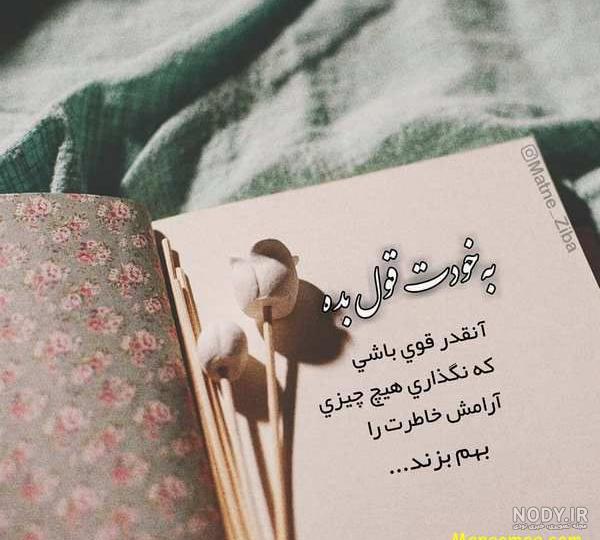 @Matne_Ziba
به خودت قول بده
آنقدر قوي باشي
که نگذاري هيچ چيزي
آرامش خاطرت را
بهم بزند...
NODY.IR